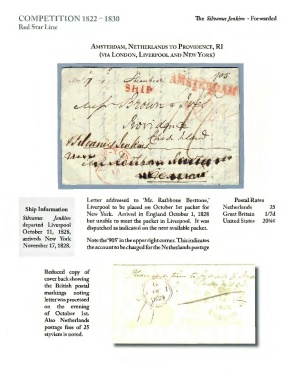 COMPETITION 1822 - 1830
The Silvanus Jenkins - Forwarded
Red Star Line
AMSTERDAM, NETHERLANDS TO PROVIDENCE, RI
(VIA LONDON, LIVERPOOL AND NEW YORK)
905
SHIP
AMSTERDAM
Mess Brown & Ives
Providence
Rhode Island
Silvanus Jenkins
Ship Information
Silvanus Jenkins
departed Liverpool
October 11, 1828,
arrived New York
November 17, 1828.
Letter addressed to 'Mr. Rathbone Brothers,'
Liverpool to be placed on October 1st packet for
New York. Arrived in England October 1, 1828
but unable to meet the packet in Liverpool. It was
dispatched as indicated on the next available packet.
Note the '905' in the upper right corner. This indicates
the account to be charged for the Netherlands postage
Postal Rates
Netherlands 25
Great Britain 1/7d
United States 20¾¢
Reduced copy of
cover back showing
the British postal
markings noting
letter was processed
on the evening
of October 1st.
Also Netherlands
postage fees of 25
styvers is noted.
1828